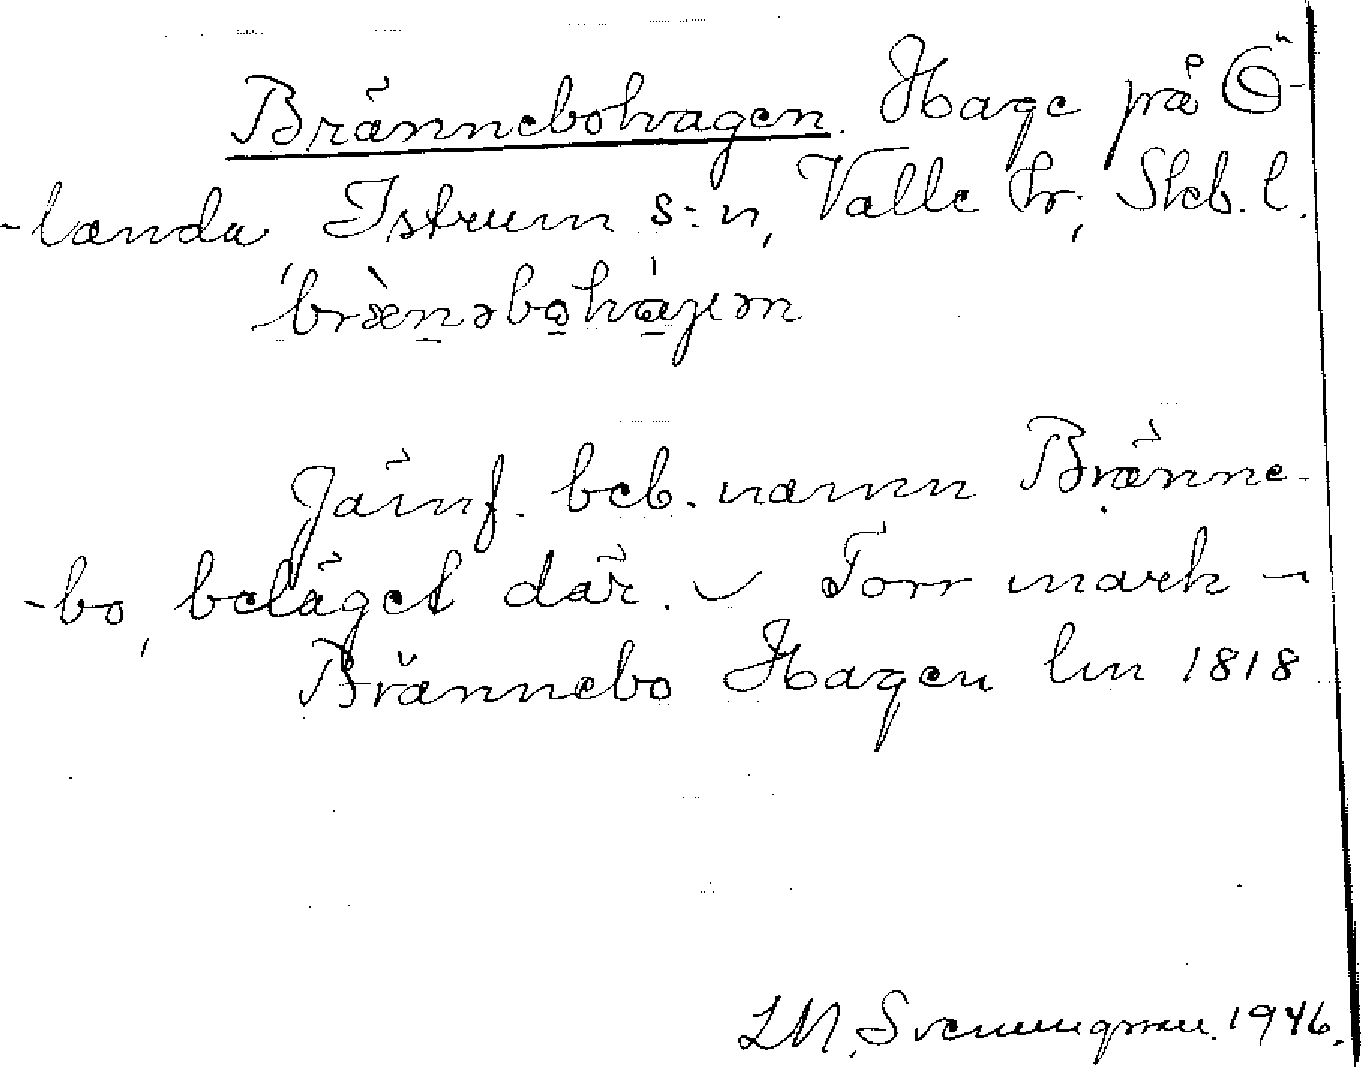 Brännebohagen. Hage på Ö-
-landa, Istrum s:n, Valle hr, Skb. l.
Jämf. beb. namn Bränne-
-bo, beläget där. ✓ Torr mark ¬
Brännebo Hagen lm 1818
LM. Svenungsson. 1946.